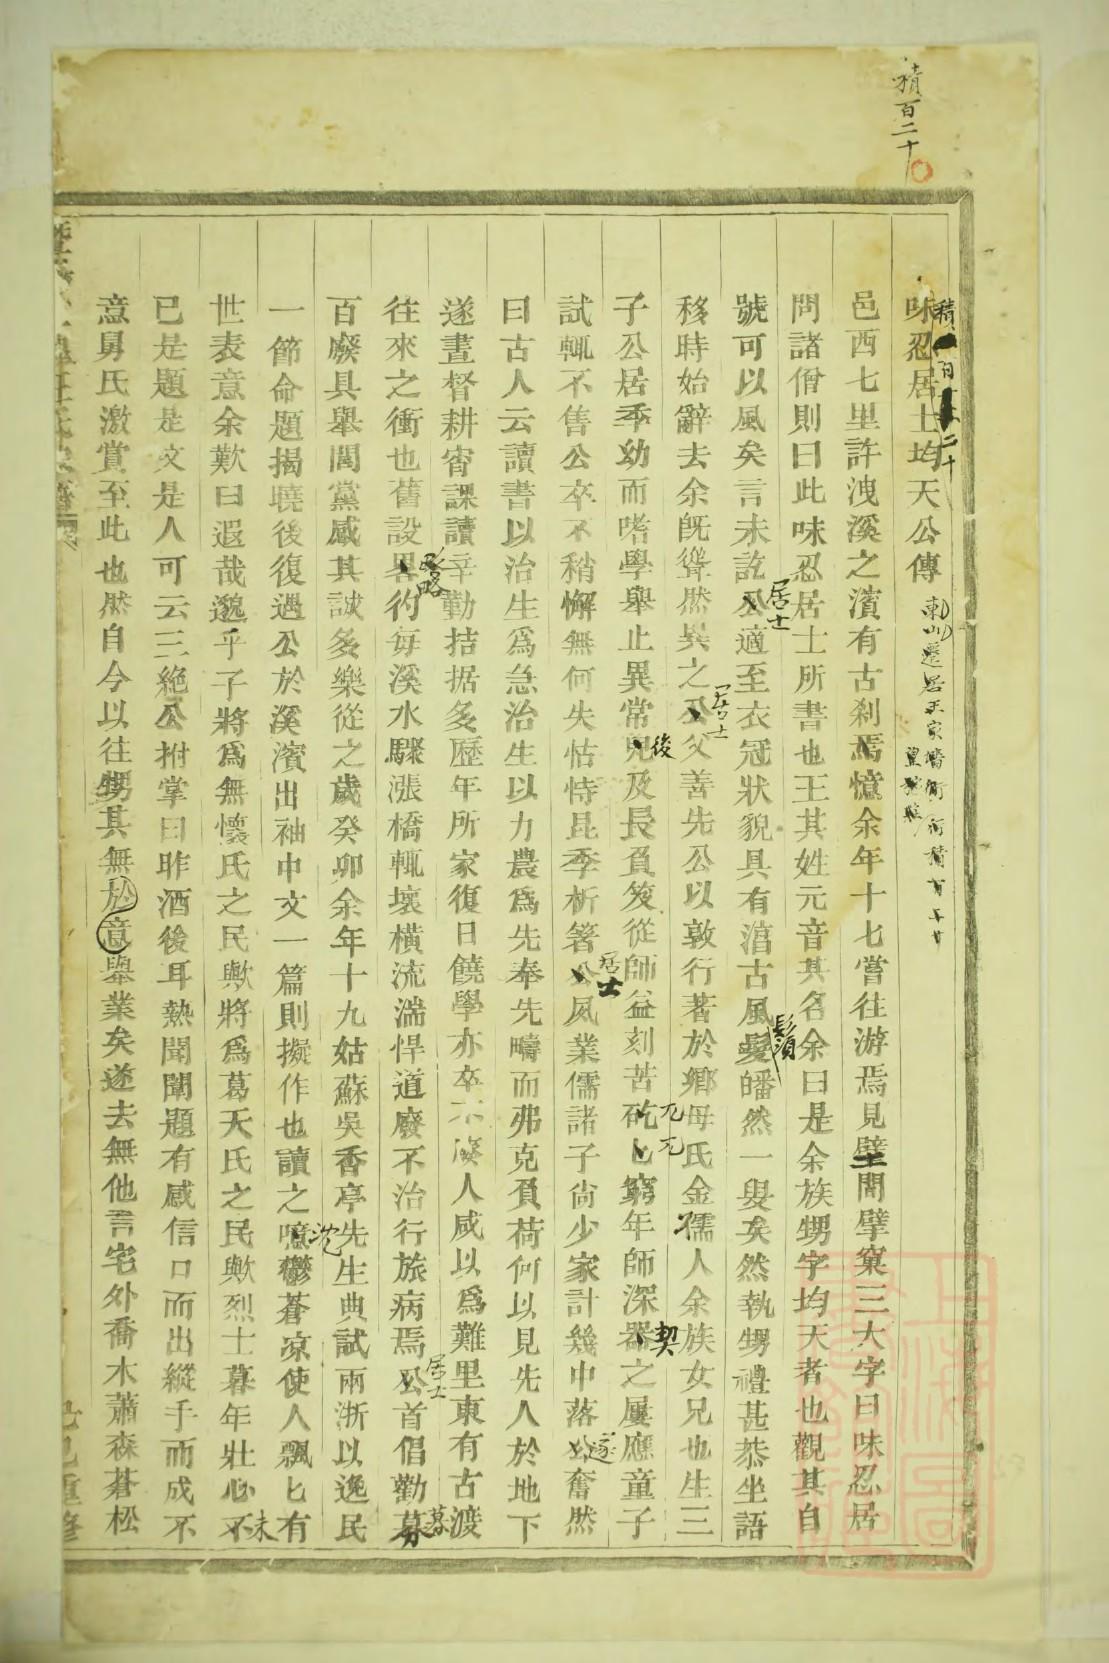 積百二十
味忍居士均天公傳
邑西七里許洩溪之濱有古刹焉憶余年十七嘗往游焉見壁間擘窠三大字曰味忍居
問諸僧則曰此味忍居士所書也王其姓元音其名余曰是余族甥字均天者也觀其自
號可以風矣言未訖公適至衣冠狀貌具有湻古風髮皤然一叟矣然執甥禮甚恭坐語
居士
鬚
移時始辭去余旣聳然異之公父善先公以敦行著於鄉母氏金孺人余族女兄也生三
居士
子公居季幼而嗜學舉止異常兒及長負笈從師益刻苦矻匕窮年師深器之屢應童子
後
兀兀
契
試輒不售公卒不稍懈無何失怙恃昆季析箸公夙業儒諸子尙少家計幾中落公奮然
居士
遂
曰古人云讀書以治生爲急治生以力農爲先奉先疇而弗克負荷何以見先人於地下
遂晝督耕宵課讀辛勤拮据多歷年所家復日饒學亦卒不廢人咸以爲難里東有古渡
往來之衝也舊設畧彴每溪水驟漲橋輒壞橫流湍悍道廢不治行旅病焉公首倡勸募
略
居士
募
百廢具舉閭黨感其誠多樂從之歲癸卯余年十九姑蘇吳香亭先生典試兩浙以逸民
一節命題揭曉後復遇公於溪濱出袖中文一篇則擬作也讀之噫鬱蒼凉使人飄匕有
沈
世表意余歎曰遐哉邈乎子將爲無懷氏之民歟將爲葛天氏之民歟烈士暮年壯心不
未
已是題是文是人可云三絶公拊掌曰昨酒後耳熱聞闈題有感信口而出縱手而成不
意舅氏激賞至此也然自今以往甥其無於意舉業矣遂去無他言宅外喬木蕭森蒼松